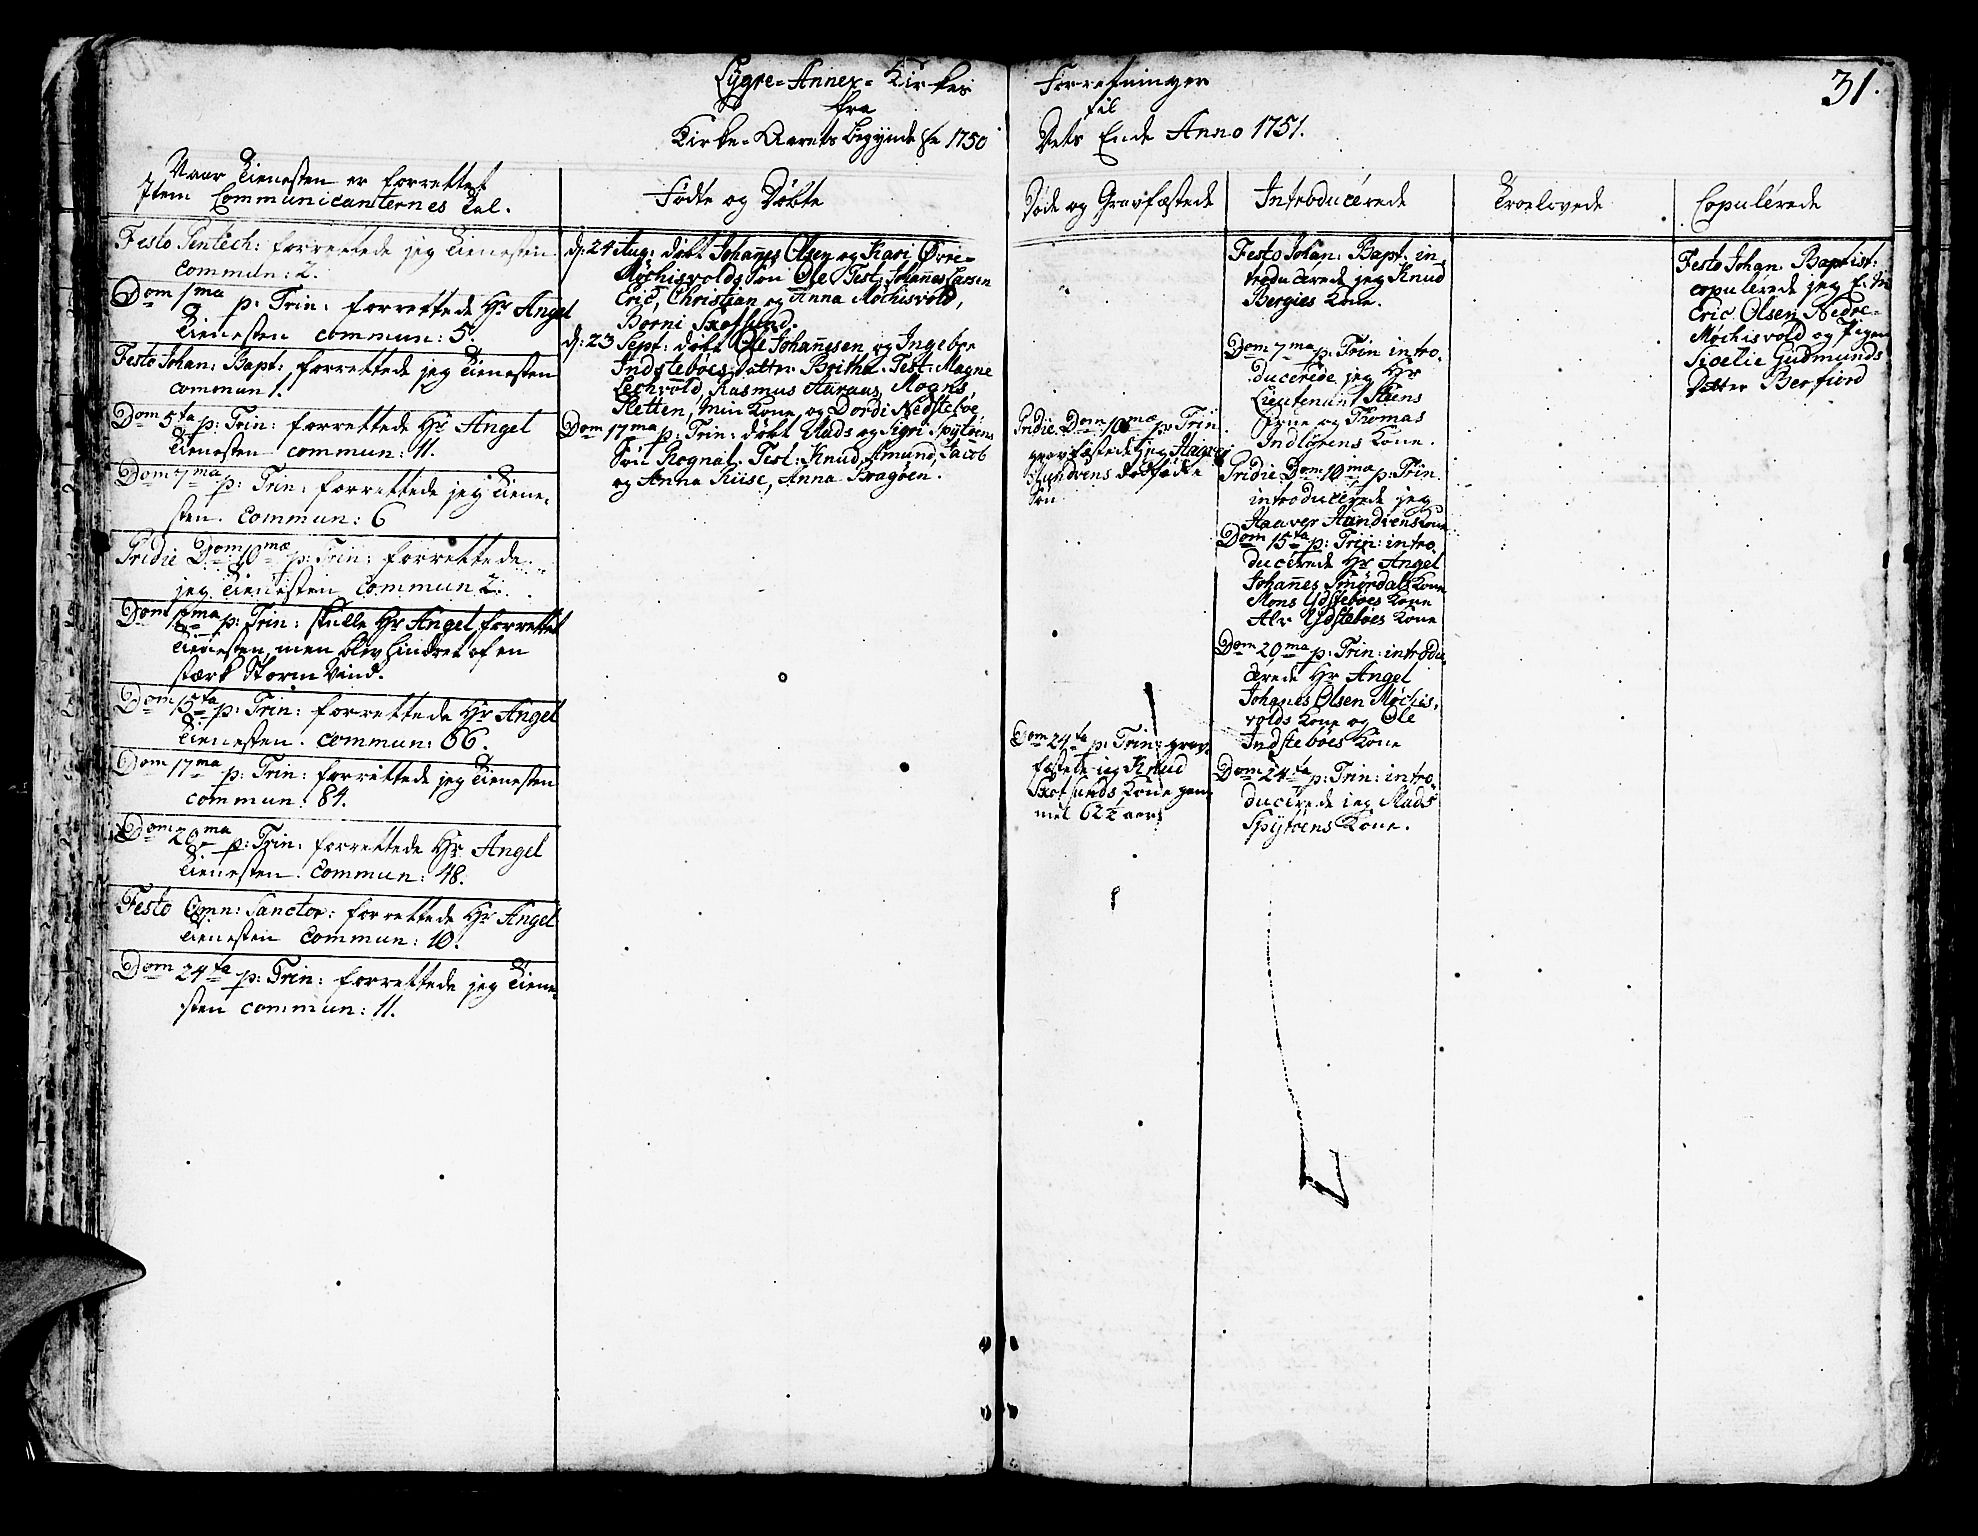 31.
Lygre-Annex-Kirkes Forretninger
fra til
Kirke-Aarets begyndelse 1750 Dets Ende Anno 1751.
Naar Tienesten er forrettet
Item Communicanternes Tal.
Festo Pentech: forrettede jeg Tienesten
commun: 2.
Dom 1ma p: Trin: forrettede Hr Angel
Tienesten commun: 5.
Festo Johan: Bapt: forrettede jeg Tienesten
commun 1.
Dom 5ta p: Trin: forrettede Hr Angel
Tienesten commun: 11.
Dom 7ma p: Trin: forrettede jeg Tiene-
sten. commun: 6
Pridie Dom 10mæ p: Trin: forrettede
jeg Tienesten commun 2.
Dom ma p: Trin: skulle Hr Angel forrettet
Tienesten, men blev hindret af en
stærk Storm Vind.
Dom 15ta p: Trin: forrettede Hr Angel
Tienesten. commun: 66.
Dom 17ma p: Trin: forrettede jeg Tienesten
commun: 84.
Dom 20ma p: Trin: forrettede Hr Angel
Tienesten. Commun: 48.
Festo Omn: Sanctor: forrettede Hr Angel
Tienesten Commun: 10.
Dom 24ta p: Trin: forrettede jeg Tiene-
sten commun: 11.
Fødte og Døbte
d: 24 Aug: døbt Johañes Olsen og Kari Øvre-
Møchisvolds Søn Ole Test: Johañes Larsen
Eric, Christian og Anna Møchisvold,
Børni Skotsund.
d: 23 Sept: døbt Ole Johañesen og Ingebor
Indstebøes Datter Britha. Test: Magne
Lechvold, Rasmus Auraas, Mogns
Sletten, min Kone, og Dordi Nedstebøe
Dom 17ma p: Trin: døbt Mads og Sigri Spytøens
Søn Rognal. Test: Knud, Amund, Jacob
og Anna Riise, Anna Bragøen.
Døde og Gravfæstede
Pridie Dom 10mæ p: Trin.
gravfæstede jeg Haaver
Hundvens dødfødte
Søn
Dom 24ta p: Trin: grav-
fæstede jeg Knud
Skotsunds Kone gam-
mel 62½ aar
Introducérede
Festo Johan: Bapt: in-
troducerede jeg Knud
Bergies Kone.
Dom 7ma p: Trin intro-
ducerede jeg Hr
Lieutenant Steens
og Thomas
Indlørens Kone.
Pridie Dom 10ma p: Trin.
introducerede jeg
Haaver Hundvens Kone
Dom 15ta p: Trin: intro-
ducerede Hr Angel
Johañes Smørdals Kone
Mons Ydstebøes Kone
Alv Ydstebøes Kone
Dom 20ma p: Trin: introdu-
cerede Hr Angel
Johanes Olsen Møchis-
volds Kone og Ole
Indstebøes Kone
Dom 24ta p: Trin: intro-
ducerede jeg Mads
Spytøens Kone.
Troelovede
Copulérede
Festo Johan: Baptist:
copulerede jeg
Eric Olsen Nedre-
Møchisvold og Pigen
Sigelie Gudmunds
Datter Berfiord